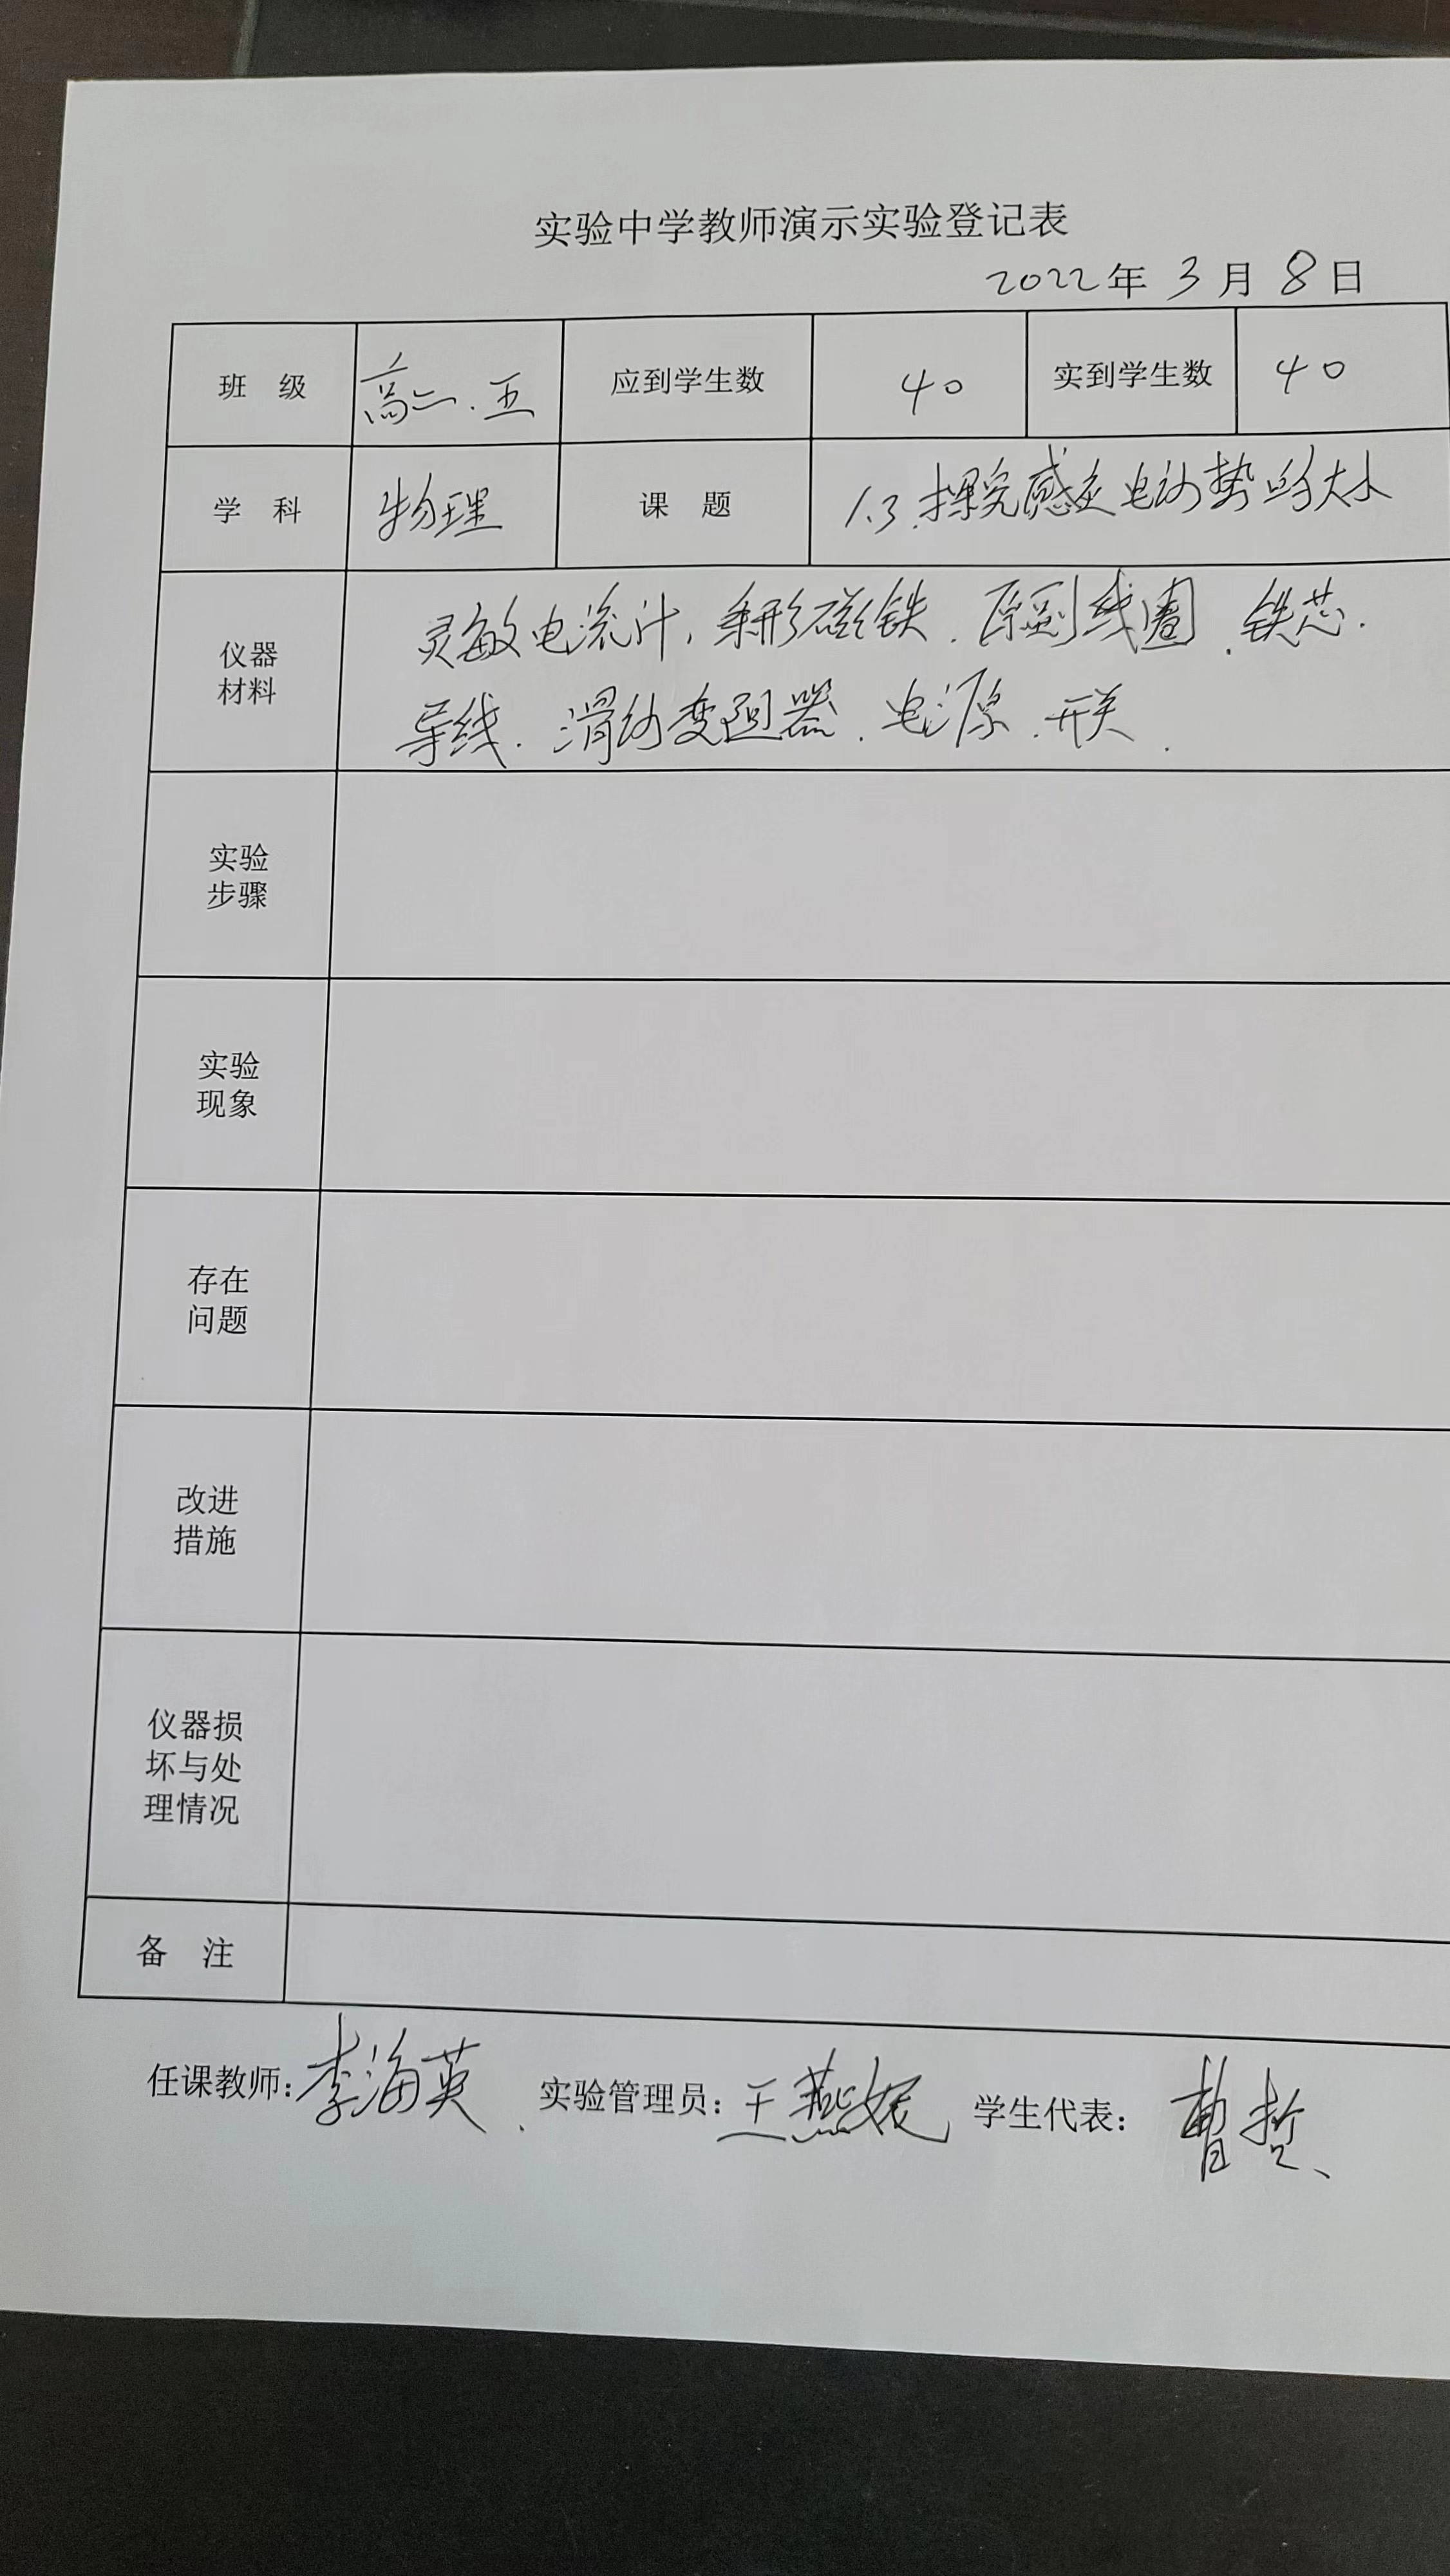 实验中学教师演示实验登记表
2022年 3月 8日
班 级 高二.五 应到学生数 40 实到学生数 40
学 科 物理 课 题 1.3.探究感应电动势的大小
仪器
材料
灵敏电流计, 条形磁铁. 原副线圈. 铁芯.
导线. 滑动变阻器. 电源. 开关.
实验
步骤
实验
现象
存在
问题
改进
措施
仪器损
坏与处
理情况
备 注
任课教师: 李海英. 实验管理员: 王燕妮 学生代表: 曹哲、